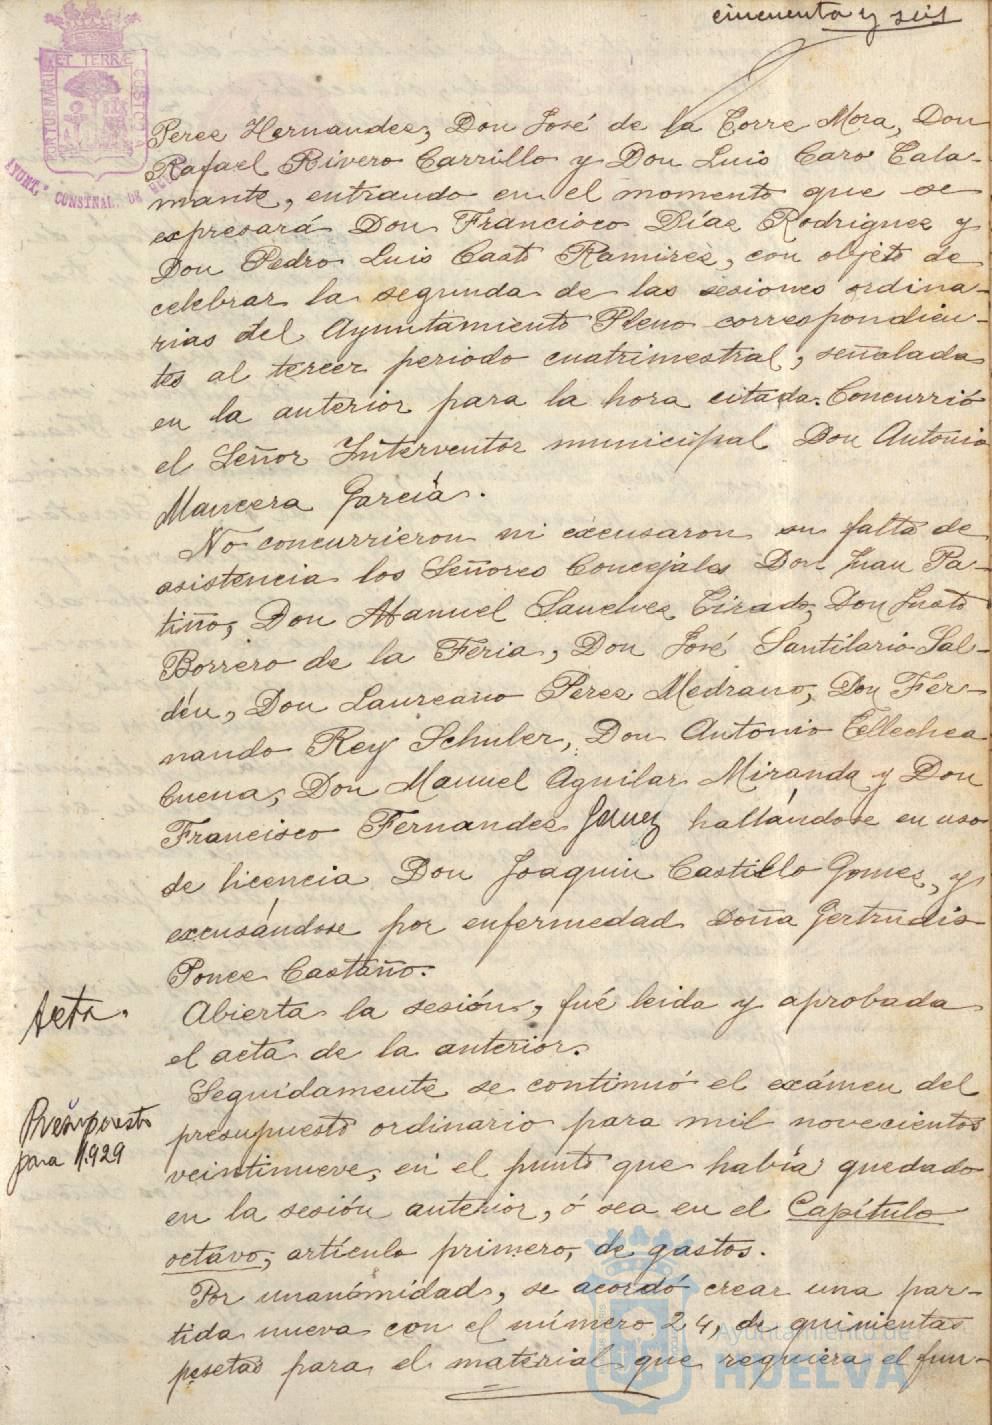 cincuenta y seis
PORTUS MARIS ET TERRÆ CUSTODIA
AYUNT.º CONSTNAL. DE
Perez Hernandez, Don José de la Torre Mora, Don
Rafael Rivero Carrillo y Don Luis Caro Tala-
mante, entrando en el momento que se
expresará Don Francisco Díaz Rodriguez y
Don Pedro Luis Casto Ramirez, con objeto de
celebrar la segunda de las sesiones ordina-
rias del Ayuntamiento Pleno correspondien-
tes al tercer periodo cuatrimestral, señalada
en la anterior para la hora citada. Concurrió
el Señor Interventor municipal Don Antonio
Mancera García.
No concurrieron ni excusaron su falta de
asistencia los Señores Concejales Don Juan Pa-
tiño, Don Manuel Sanchez Tirado, Don Justo
Borrero de la Feria, Don José Santilario Sal-
dén, Don Laureano Perez Medrano, Don Fer-
nando Rey Schuler, Don Antonio Tellechea
Cuena, Don Manuel Aguilar Miranda y Don
Francisco Fernandez hallándose en uso
de licencia Don Joaquin Castillo Gomez, y
excusándose por enfermedad Doña Gertrudis
Ponce Castaño.
Acta.
Abierta la sesión, fué leida y aprobada
el acta de la anterior.
Presupuesto
para 1929
Seguidamente se continuó el exámen del
presupuesto ordinario para mil novecientos
veintinueve, en el punto que había quedado
en la sesión anterior, ó sea en el Capítulo
octavo, artículo primero, de gastos.
Por unanimidad, se acordó crear una par-
tida nueva con el número 24, de quinientas
pesetas para el material que requiera el fun-
Ayuntamiento de
HUELVA